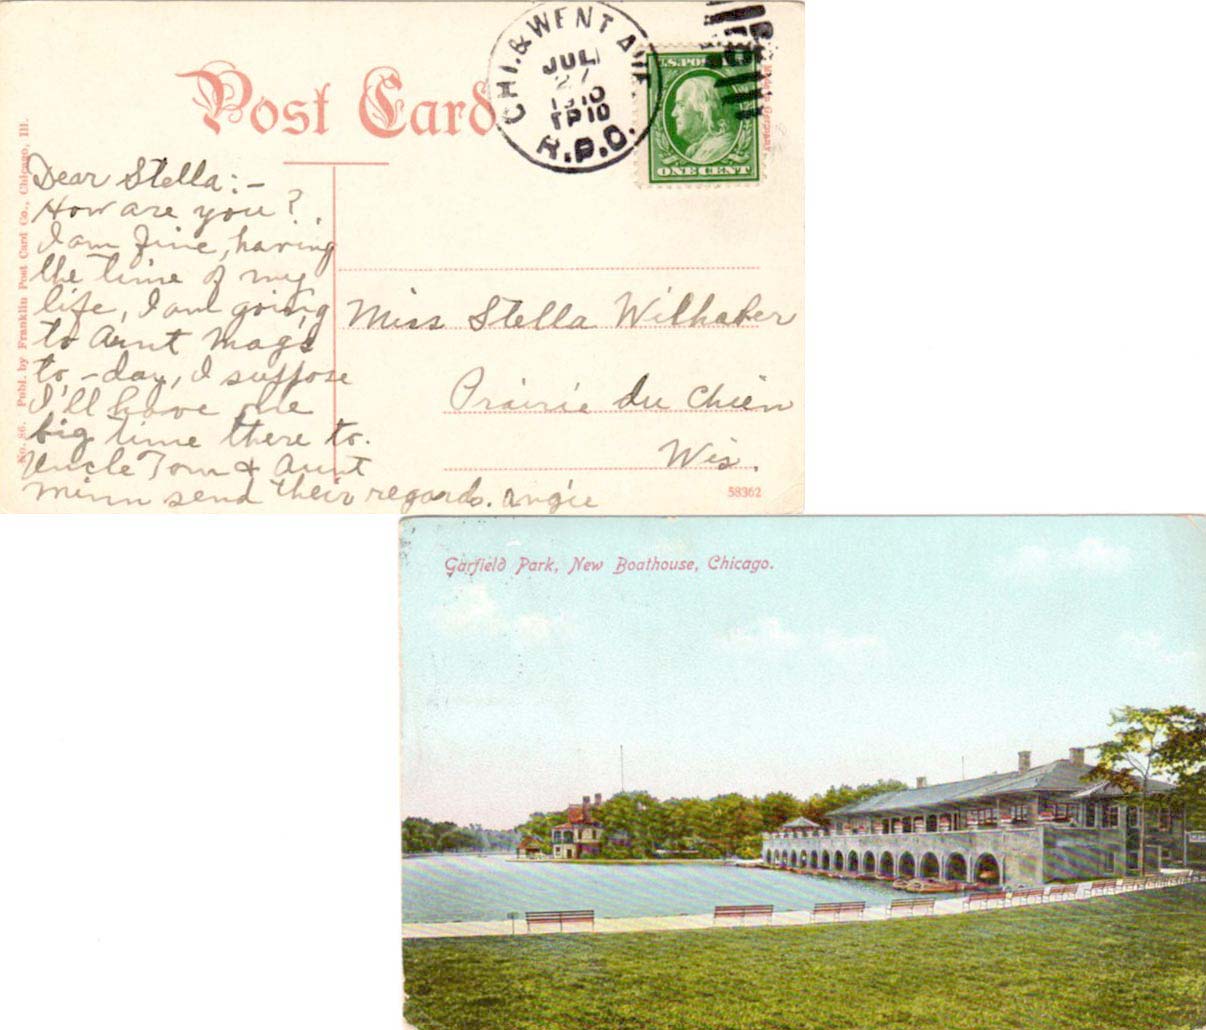 Post Card
CHI. & WENT AVE
JUL
27
1910
TP10
R.P.O.
U.S. POSTAGE
ONE CENT
Made in Germany
No. 86. Publ. by Franklin Post Card Co., Chicago, Ill.
Dear Stella:-
How are you?
I am fine, having
the time of my
life, I am going
to Aunt Mag's
to-day, I suppose
I'll have one
big time there to.
Uncle Tom & Aunt
Minn send their regards. Angie
Miss Stella Wilhaber
Prairie du Chien
Wis.
58362
Garfield Park, New Boathouse, Chicago.